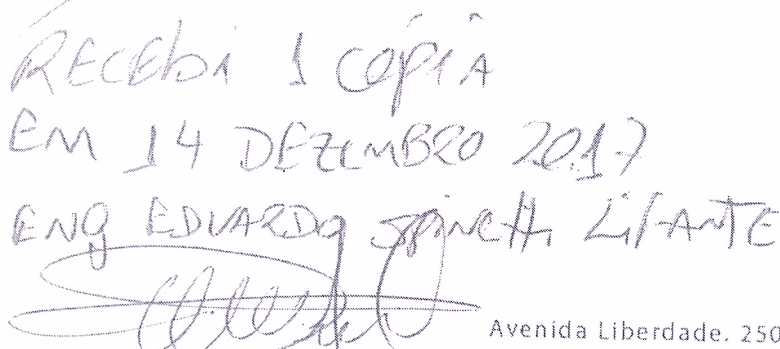 RECEbi 1 CÓPIA
EM 14 DEZEMBRO 2017
ENG EDUARDO SPINCHI LIFANTE
Avenida Liberdade. 250